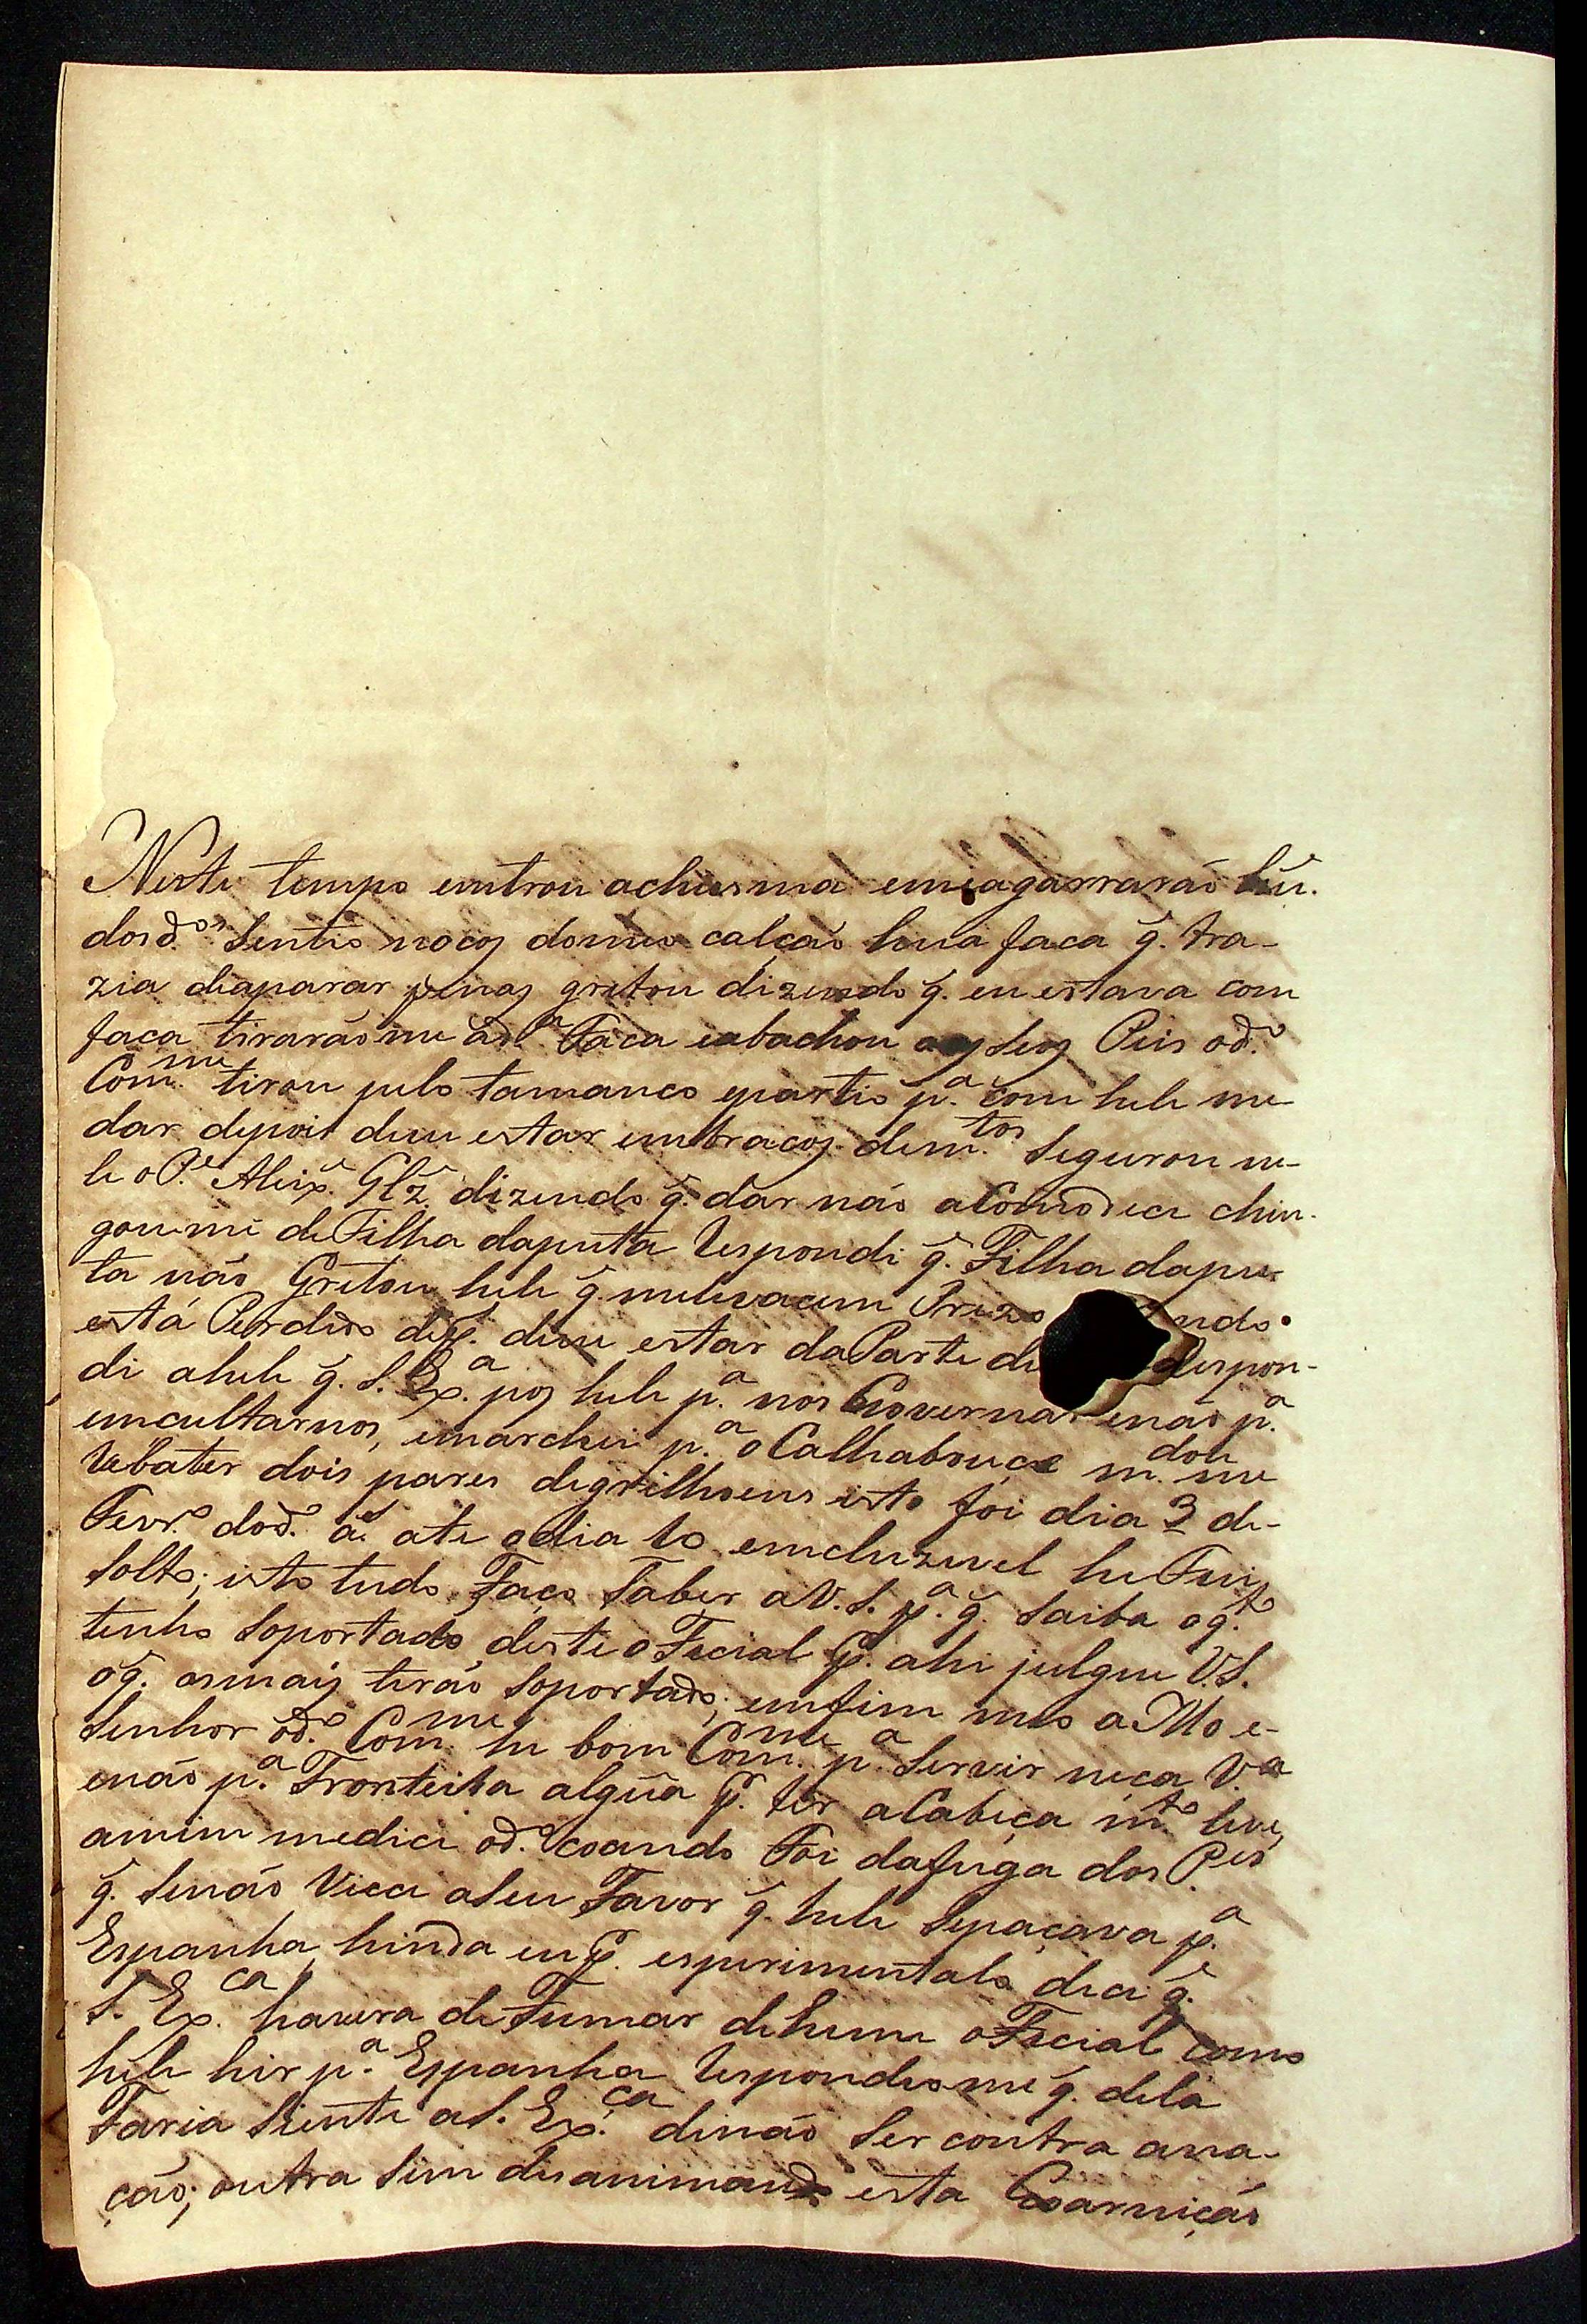 Neste tempo emtrou achusma emeagarrarão hũ.
dosd.os Sentio nocoz domeu calção huna faca q̃. tra-
zia deaparar penaz gritou dizendo q̃. eu estava com
faca tirarãome ad.a Faca eabachou aoz seoz Peis od.o
Com.me tirou pelo tamanco epartio p.a com hele me
dar depois deeu estar embracoz dem.tos Segurou ne-
le o P.e Aleix.e Glz̃ dizendo q̃. dar não aComodece chin-
goume deFilha daputa Respondi q̃. Filha dapu-
ta não Gritou hele q̃. melevacem Prezo ndo
está Perdido dip. deeu estar daParte de Respon-
di ahele q̃. S. Ex.a poz hele p.a nos Governar enão p.a
emcultarnos, emarchei p.a o Calhabouce m.dou me
Rebater dois pares degrilhoens isto foi dia 3 de-
Fevr.o dod.o a.e ate odia 10 emcluzivel he Fui
solto; isto tudo Faço Saber aV.S. p.a q̃. Saiba oq.to
tenho Soportado deste oFecial P. ahi julgue V.S.
oq̃. osmaiz terão Soportado; emfim meo aMo e-
Senhor od.o Com.me he bom Com.me p.a Servir neça V.a
enão p.a Fronteira algũa P. ter aCabeça m.to leve,
amim medice od.o coando Foi dafuga dos P.es
q̃. Senão Vice aSeu Favor q̃. hele Sepaçava p.a
Espanha, hinda eu P. esperimentalo dice q̃.
S. Ex.ca havera deFumar dehum oFecial como
hele hir p.a Espanha Respondeome q̃. dela
Faria Siente aS. Ex.ca denão Ser contra ana-
ção; outra Sim desanimando esta Goarnição